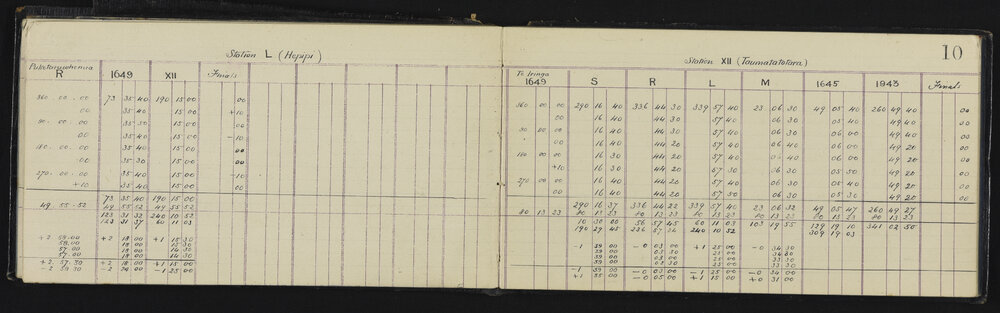 Station L (Hepipi)
R 1649 XII Finals
360 . 00 . 00 73 35 40 190 15 00 00
00 35 40 15 00 +10
90 . 00 . 00 35 30 15 00 00
00 35 40 15 00 -10
180 . 00 . 00 35 40 15 00 00
00 35 30 15 00 00
270 . 00 . 00 35 40 15 00 -10
+10 35 40 15 00 00
73 35 40 190 15 00
49 . 55 . 52 49 55 52 49 55 52
123 31 32 240 10 52
123 31 37 60 11 03
+2 . 58.00 +2 18 00 +1 15 30
58.00 18 00 15 30
57.00 18 00 14 30
57.00 18 00 14 30
+2 . 57 . 30 +2 18 00 +1 15 00
-2 59 30 -2 20 00 -1 25 00
10
Station XII (Toumatatotara)
Te Iringa
1649 S R L M 1645 1943 Finals
360 00 00 290 16 40 336 44 30 339 57 40 23 06 30 49 05 40 260 49 40 00
00 16 40 44 30 57 40 06 30 05 40 49 40 00
90 00 00 16 40 44 30 57 40 06 30 06 00 49 40 00
00 16 40 44 20 57 40 06 40 06 00 49 20 00
180 00 00 16 30 44 20 57 40 06 40 06 00 49 20 00
+10 16 30 44 20 57 30 06 30 05 30 49 20 00
270 00 00 16 40 44 20 57 40 06 30 05 40 49 20 00
00 16 40 44 20 57 50 06 30 05 30 49 20 00
290 16 37 336 44 22 339 57 40 23 06 32 49 05 47 260 49 27
80 13 23 80 13 23 80 13 23 80 13 23 80 13 23 80 13 23 80 13 23
10 30 00 56 57 45 60 11 03 103 19 55 129 19 10 341 02 50
190 29 45 236 57 56 240 10 52 309 19 03
-1 39 00 -0 03 00 +1 25 00 -0 34 30
39 00 03 30 25 00 34 30
39 00 03 00 25 00 33 30
39 00 03 30 25 00 33 30
-1 39 00 -0 03 00 -1 25 00 -0 34 00
+1 35 00 -0 05 00 +1 15 00 +0 31 00